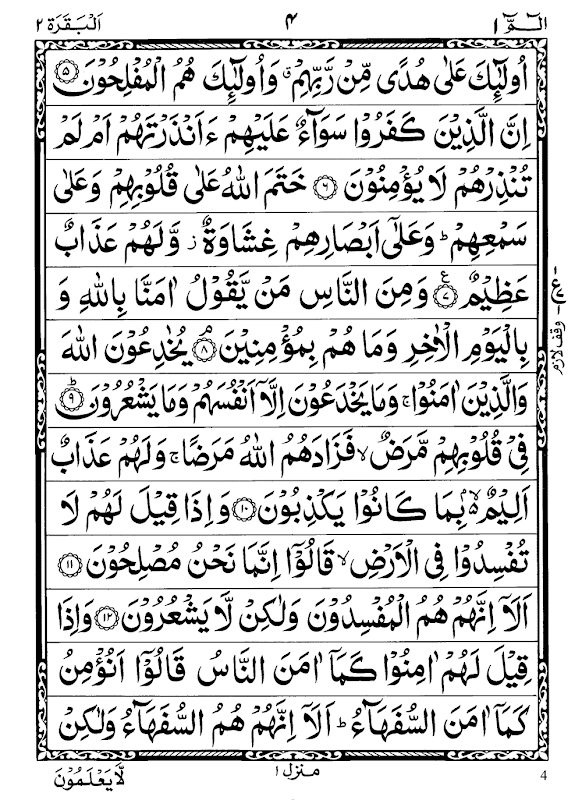 الٓمّٓ ١ ۴ اَلْبَقَرَة ٢
اُولٰٓئِكَ عَلٰى هُدًى مِّنْ رَّبِّهِمْ ۗ وَاُولٰٓئِكَ هُمُ الْمُفْلِحُوْنَ ۝۵
اِنَّ الَّذِيْنَ كَفَرُوْا سَوَآءٌ عَلَيْهِمْ ءَاَنْذَرْتَهُمْ اَمْ لَمْ
تُنْذِرْهُمْ لَا يُؤْمِنُوْنَ ۝۶ خَتَمَ اللّٰهُ عَلٰى قُلُوْبِهِمْ وَعَلٰى
سَمْعِهِمْ ؕ وَعَلٰٓى اَبْصَارِهِمْ غِشَاوَةٌ ز وَّلَهُمْ عَذَابٌ
عَظِيْمٌ ۝۷ ع وَمِنَ النَّاسِ مَنْ يَّقُوْلُ اٰمَنَّا بِاللّٰهِ وَ
بِالْيَوْمِ الْاٰخِرِ وَمَا هُمْ بِمُؤْمِنِيْنَ ۝۸ۘ يُخٰدِعُوْنَ اللّٰهَ
وَالَّذِيْنَ اٰمَنُوْا ۚ وَمَا يَخْدَعُوْنَ اِلَّآ اَنْفُسَهُمْ وَمَا يَشْعُرُوْنَ ۝۹ؕ
فِيْ قُلُوْبِهِمْ مَّرَضٌ ۙ فَزَادَهُمُ اللّٰهُ مَرَضًا ۚ وَلَهُمْ عَذَابٌ
اَلِيْمٌۢ ۙ بِمَا كَانُوْا يَكْذِبُوْنَ ۝۱۰ وَاِذَا قِيْلَ لَهُمْ لَا
تُفْسِدُوْا فِى الْاَرْضِ ۙ قَالُوْٓا اِنَّمَا نَحْنُ مُصْلِحُوْنَ ۝۱۱
اَلَآ اِنَّهُمْ هُمُ الْمُفْسِدُوْنَ وَلٰكِنْ لَّا يَشْعُرُوْنَ ۝۱۲ وَاِذَا
قِيْلَ لَهُمْ اٰمِنُوْا كَمَآ اٰمَنَ النَّاسُ قَالُوْٓا اَنُؤْمِنُ
كَمَآ اٰمَنَ السُّفَهَآءُ ؕ اَلَآ اِنَّهُمْ هُمُ السُّفَهَآءُ وَلٰكِنْ
وقف لازم
منزل ١
لَّا يَعْلَمُوْنَ
4